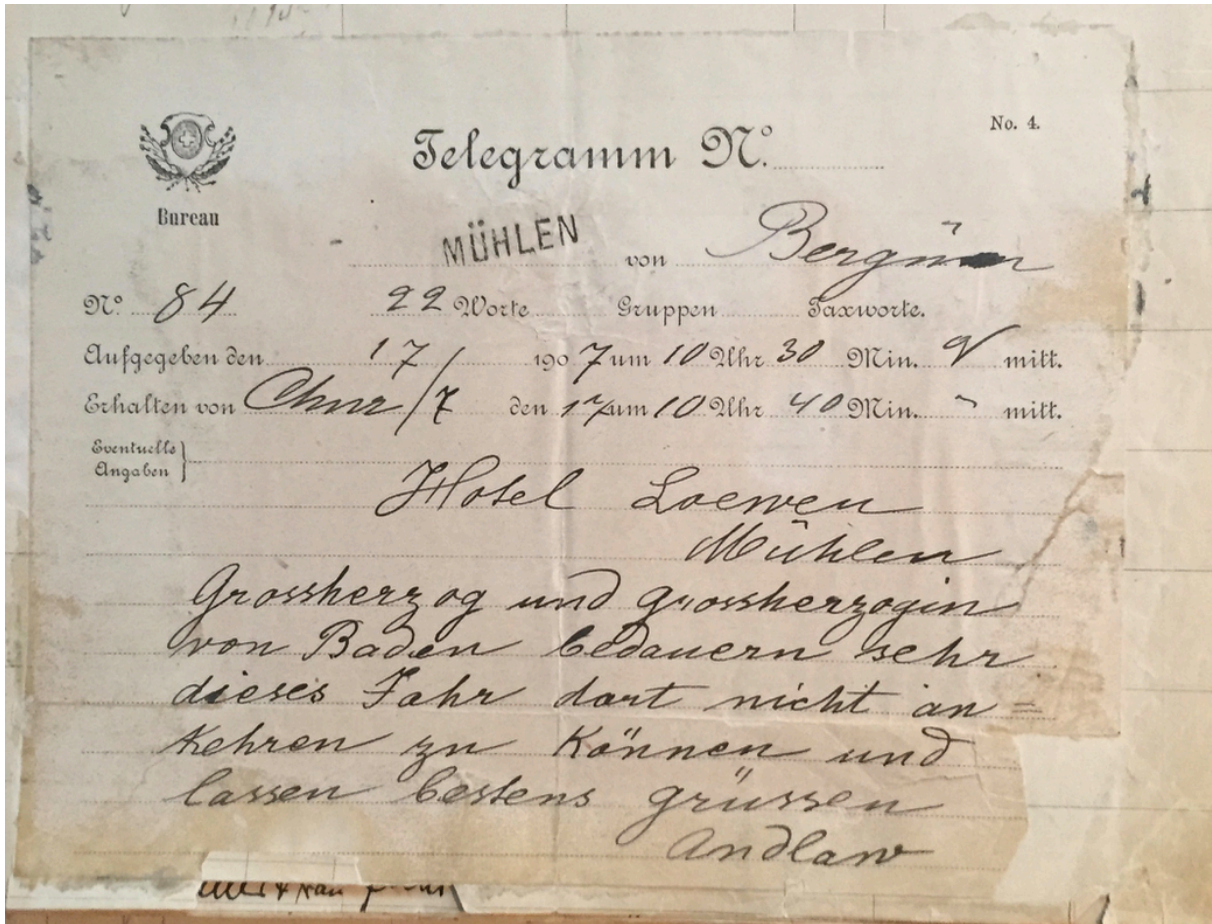 No. 4.
Telegramm No.
Bureau
MÜHLEN von Bergün
No. 84 22 Worte Gruppen Taxworte.
Aufgegeben den 17/ 1907 um 10 Uhr 30 Min. V mitt.
Erhalten von Chur /7 den 17 um 10 Uhr 40 Min. " mitt.
Eventuelle
Angaben }
Hotel Loewen
Mühlen
Grossherzog und Grossherzogin
von Baden bedauern sehr
dieses Jahr dort nicht an=
kehren zu können und
lassen bestens grüssen
Andlaw